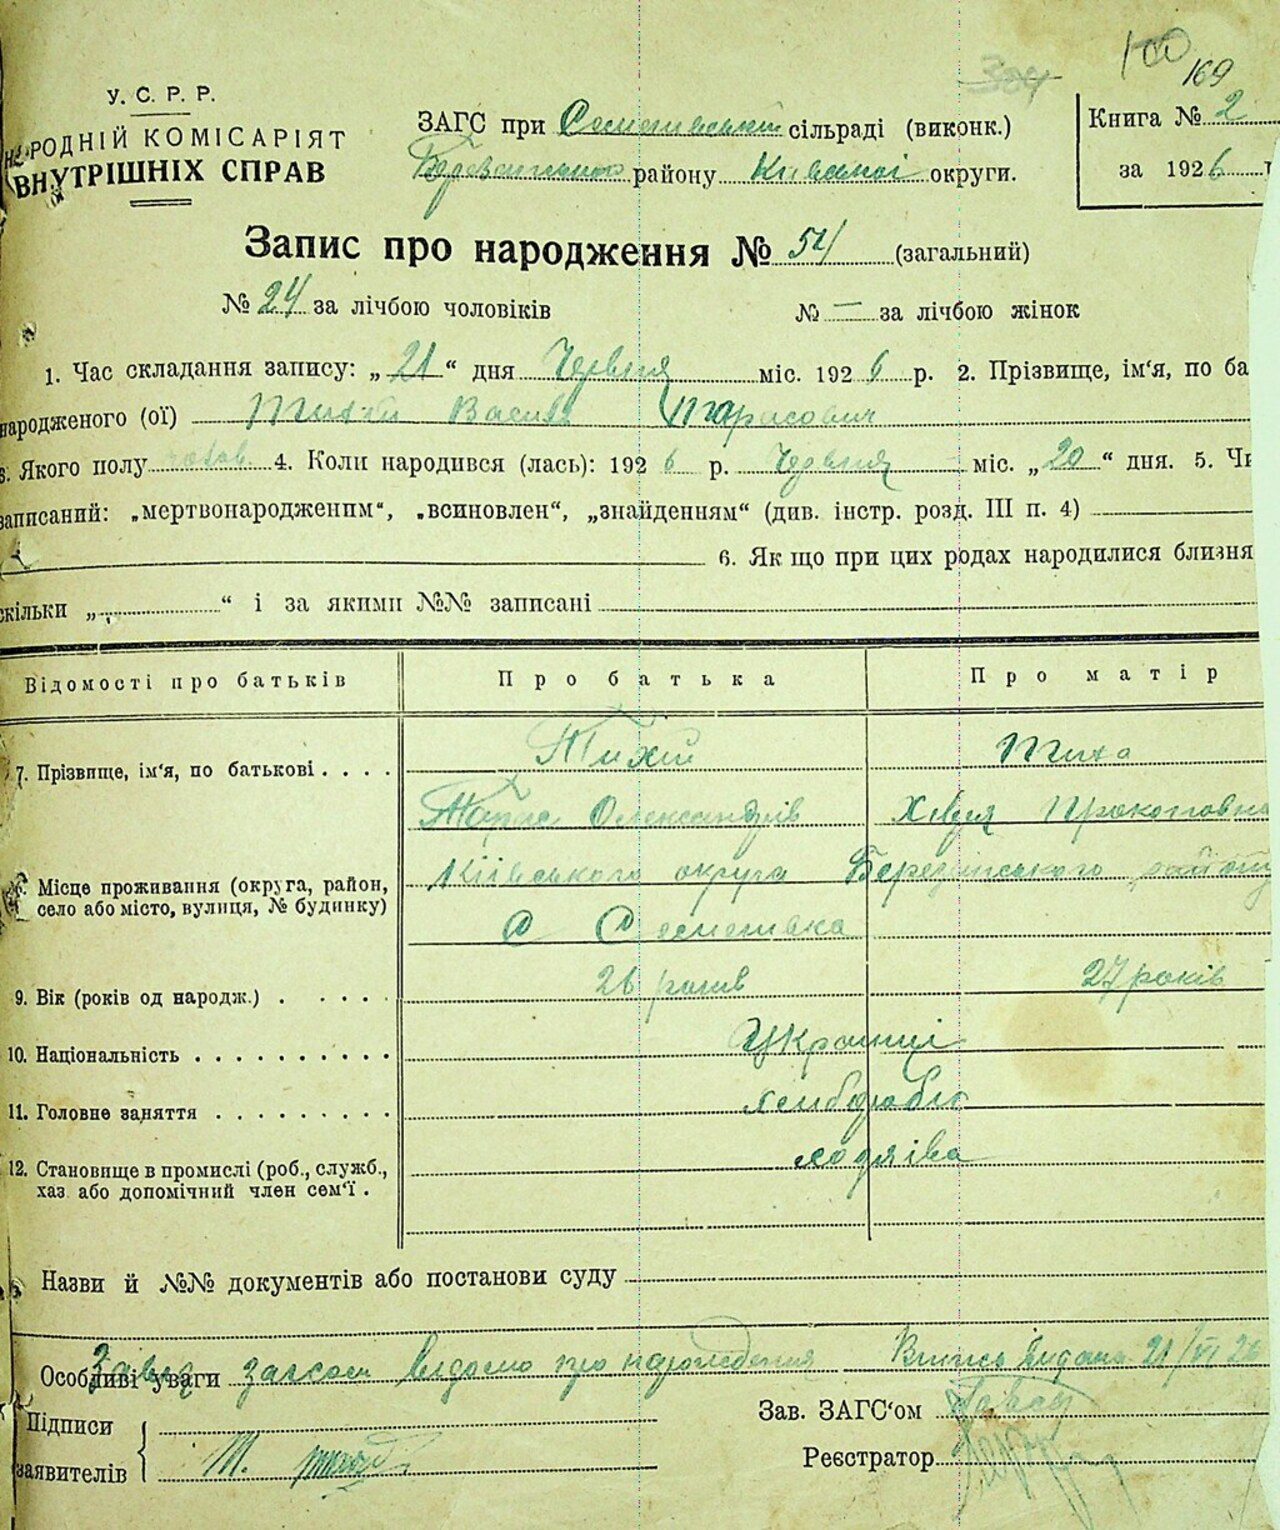 100
169
У. С. Р. Р.
НАРОДНІЙ КОМІСАРІЯТ
ВНУТРІШНІХ СПРАВ
ЗАГС при Семенівській сільраді (виконк.)
району Київської округи.
Книга № 2
за 1926
Запис про народження № 54 (загальний)
№ 24 за лічбою чоловіків № — за лічбою жінок
1. Час складання запису: „21“ дня Червня міс. 1926 р. 2. Прізвище, ім‘я, по ба
народженого (ої) Тихий Василь Тарасович
3. Якого полу чолов. 4. Коли народився (лась): 1926 р. Червня міс. „20“ дня. 5. Чи
записаний: „мертвонародженим“, „всиновлен“, „знайденням“ (див. інстр. розд. III п. 4)
6. Як що при цих родах народилися близня
скільки „ “ і за якими №№ записані
Відомості про батьків Про батька Про матір
7. Прізвище, ім‘я, по батькові . . . . Тихий Тиха
Тарас Олександрів Хівря Прокоповна
8. Місце проживання (округа, район, Київського округа Березанського району
село або місто, вулиця, № будинку) С Семенівка
9. Вік (років од народж.) . . . . . 26 років 27 років
10. Національність . . . . . . . . . . Українці
11. Головне заняття . . . . . . . . . хліборобство
12. Становище в промислі (роб., служб.,
хаз або допомічний член сем‘ї .
Назви й №№ документів або постанови суду
Особливі уваги Завед загсом відомо про народження Випись видана 21/VI 26
Підписи
заявителів Т.
Зав. ЗАГС‘ом
Реєстратор